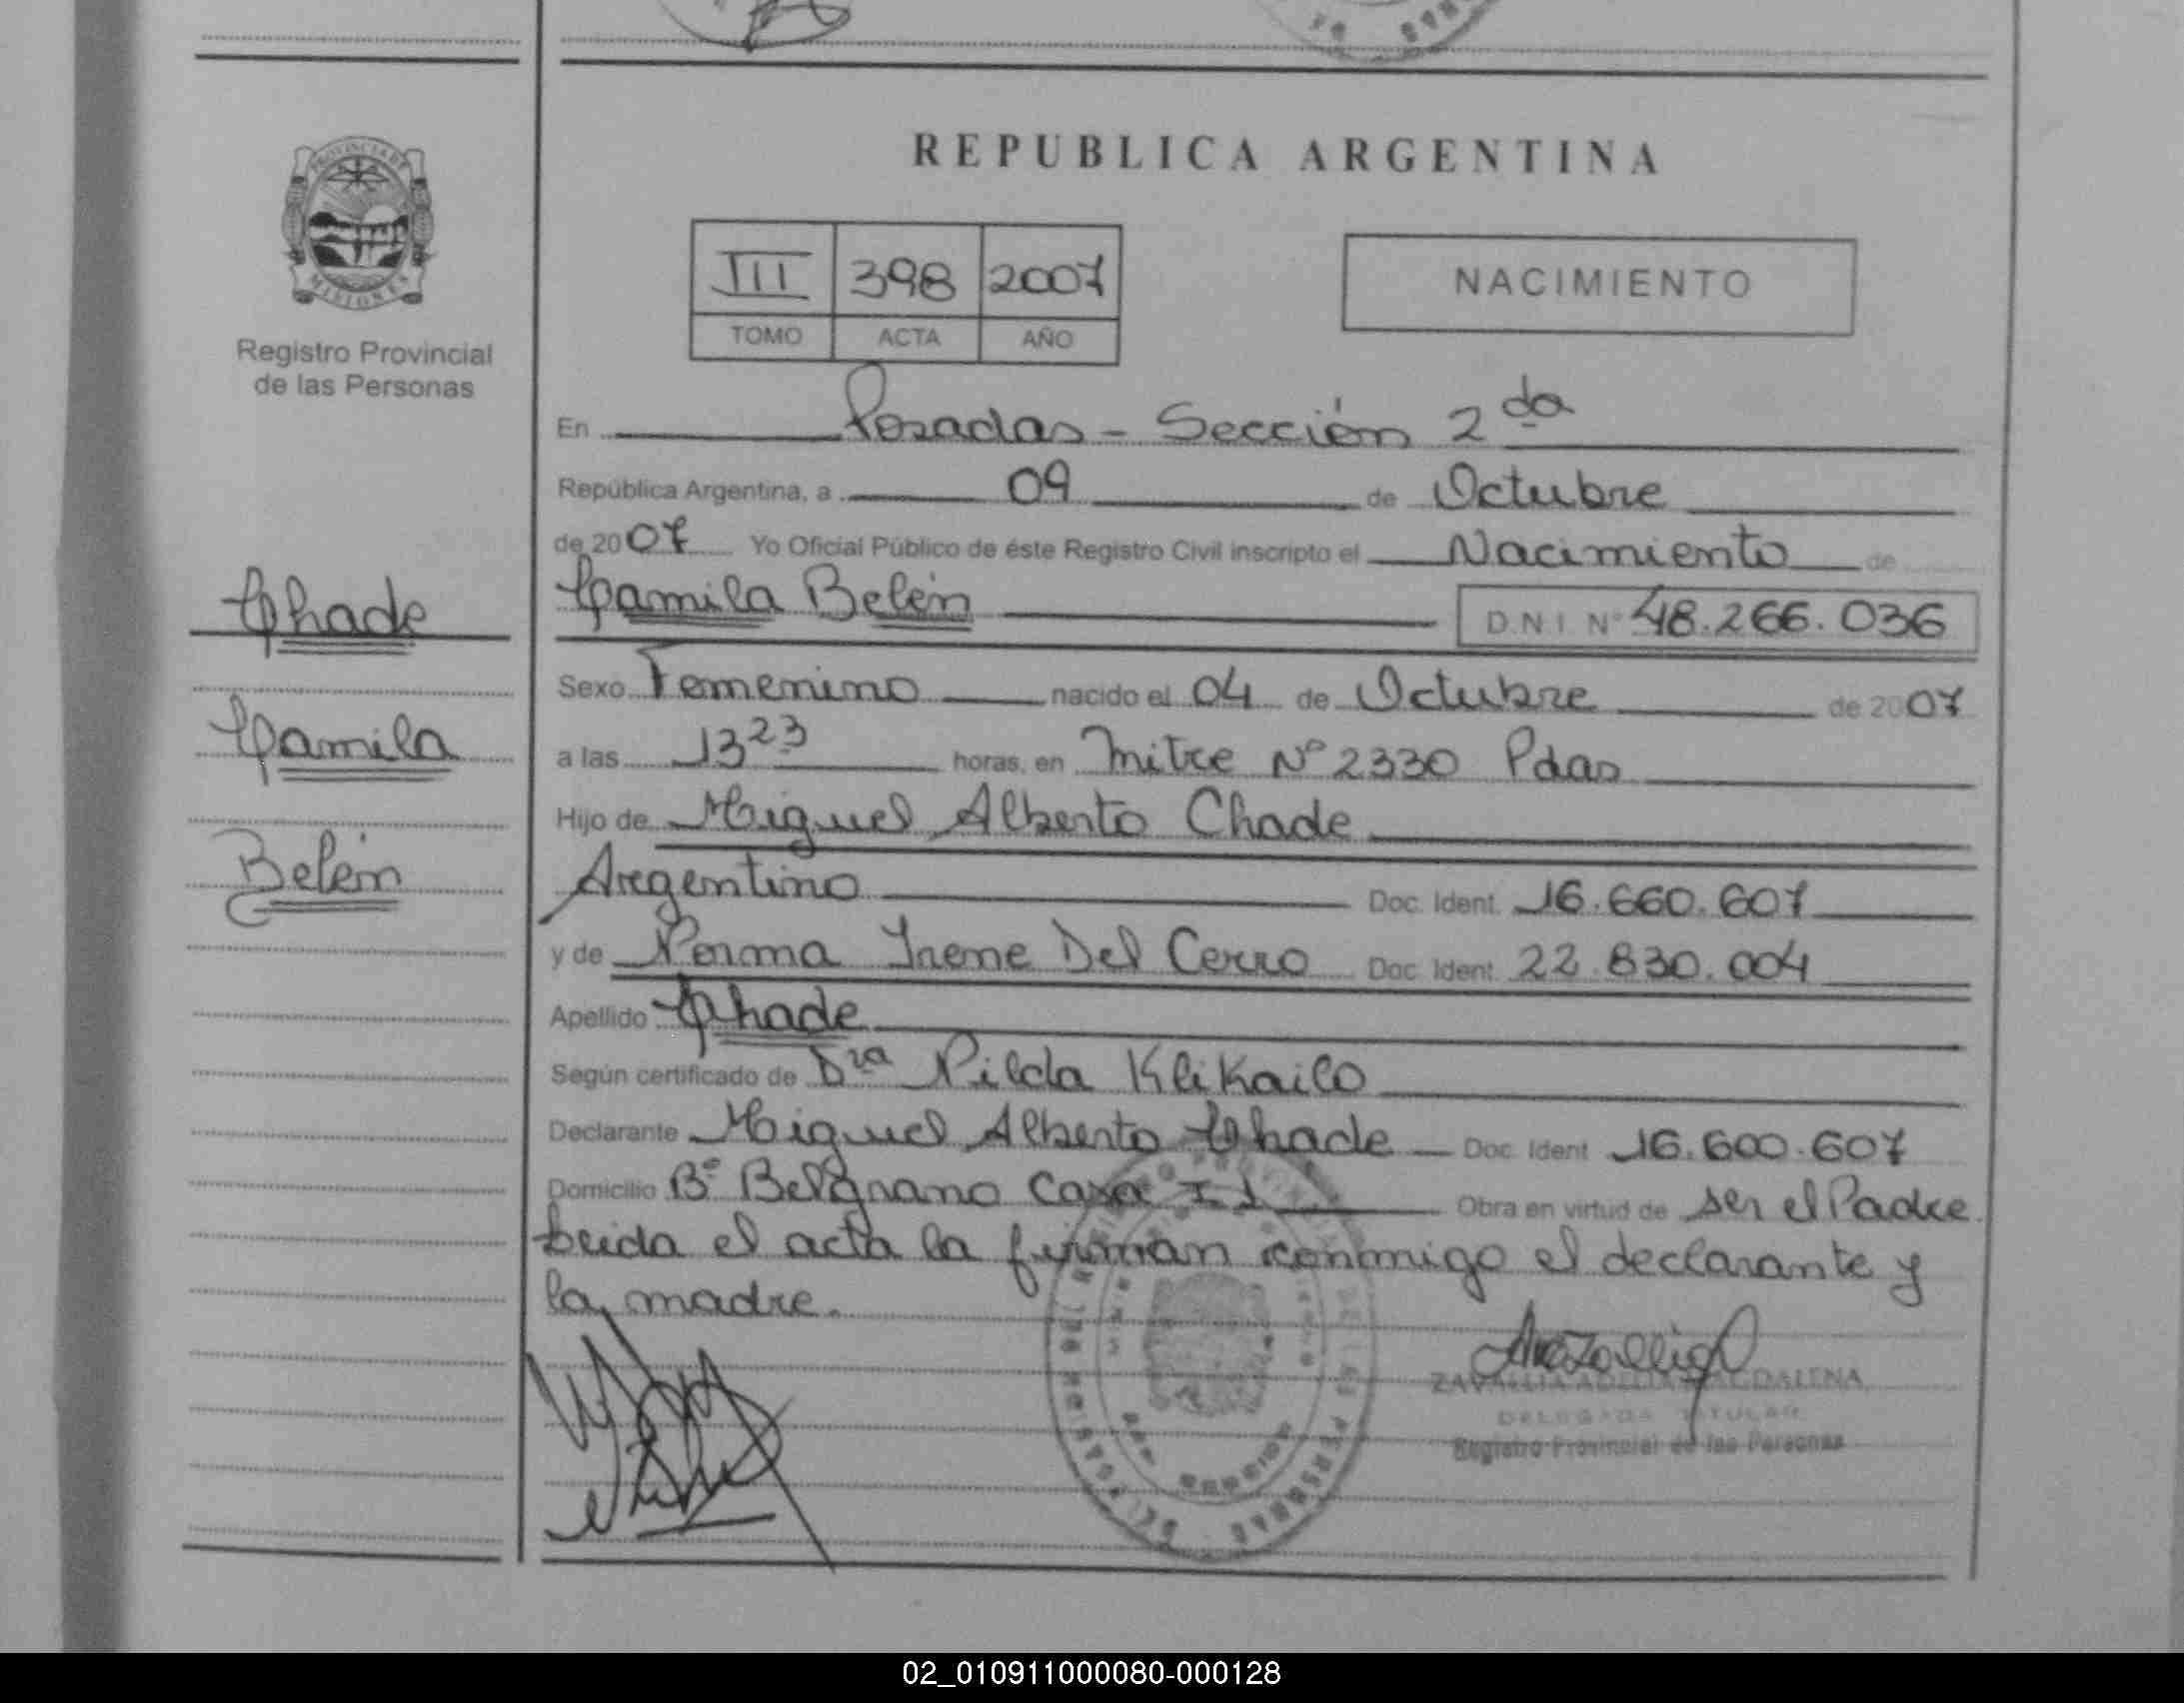 REPUBLICA ARGENTINA
PROVINCIA DE
MISIONES
Registro Provincial
de las Personas
III 398 2007
TOMO ACTA AÑO
NACIMIENTO
En Posadas - Sección 2da
República Argentina, a 09 de Octubre
de 2007 Yo Oficial Público de éste Registro Civil inscripto el Nacimiento de
Camila Belén D.N.I. Nº 48.266.036
Chade
Camila
Belén
Sexo Femenino nacido el 04 de Octubre de 2007
a las 13 23 horas, en Mitre Nº 2330 Pdas
Hijo de Miguel Alberto Chade
Argentino Doc. Ident. 16.660.607
y de Norma Irene Del Cerro Doc. Ident. 22.830.004
Apellido Chade
Según certificado de Dra Nilda Klikailo
Declarante Miguel Alberto Chade Doc. Ident 16.600.607
Domicilio Bº Belgrano Casa Obra en virtud de ser el Padre
Leida el acta la firman conmigo el declarante y
la madre.
ZAVALLIA ADELIA MAGDALENA
DELEGADA TITULAR
Registro Provincial de las Personas
02_010911000080-000128